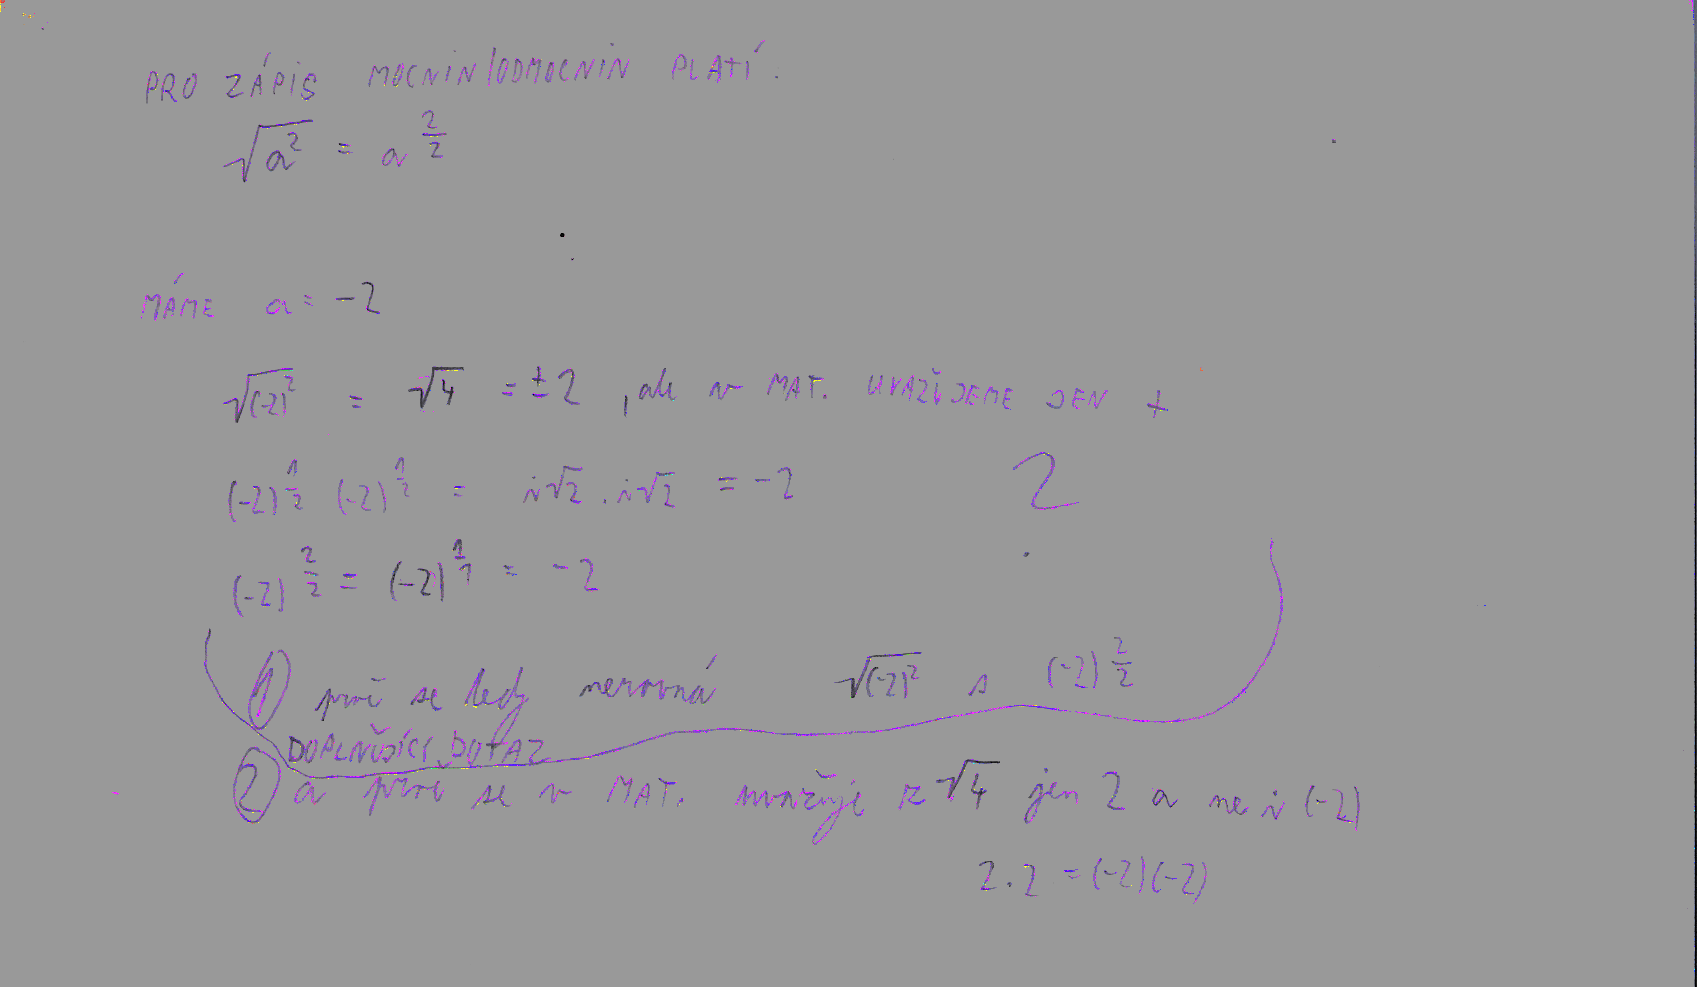 PRO ZÁPIS MOCNIN/ODMOCNIN PLATÍ.
√a² = a^(2/2)
MÁME a = -2
√(-2)² = √4 = ±2 , ale v MAT. UVAŽUJEME JEN +
2
(-2)^(1/2) (-2)^(1/2) = i√2 . i√2 = -2
(-2)^(2/2) = (-2)^(1/1) = -2
1 proč se tedy nerovná √(-2)² s (-2)^(2/2)
DOPLŇUJÍCÍ DOTAZ
2 a proč se v MAT. uvažuje z √4 jen 2 a ne i (-2)
2 . 2 = (-2)(-2)